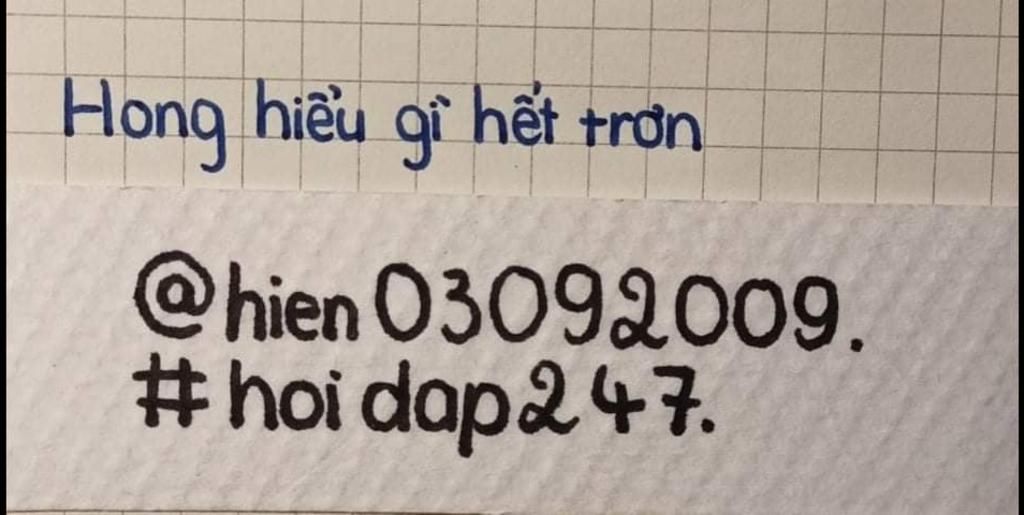 Hong hiểu gì hết trơn
@hien03092009.
#hoidap247.